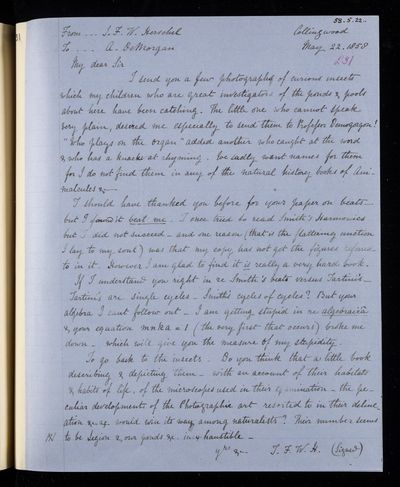 58.5.22.
From ... J. F. W. Herschel Collingwood
To ... A. DeMorgan May 22. 1858
My dear Sir
I send you a few photographs of curious insects
which my children who are great investigators of the ponds & pools
about here have been catching. The little one who cannot speak
very plain, desired me especially to send them to Professor Demogorgon!
"Who plays on the organ" added another who caught at the word
& who has a knack at rhyming. We sadly want names for them
for I do not find them in any of the natural history books of Ani-
malcules &c
I should have thanked you before for your paper on beats
but I found it beat me. I once tried to read Smith's Harmonics
but I did not succeed - and one reason (that is the flattering unction
I lay to my soul) was that my copy has not got the figures referred
to in it. However I am glad to find it is really a very hard book.
If I understand you right in re Smith's beats versus Tartini's -
Tartini's are single cycles - Smith's cycles of cycles? But your
algebra I cant follow out - I am getting stupid in re algebraicâ
& your equation mnka = 1 (the very first that occurs) broke me
down - which will give you the measure of my stupidity.
To go back to the insects. Do you think that a little book
describing & depicting them - with an account of their habitats
& habits of life, of the microscopes used in their examination - the pe-
culiar developments of the Photographic art resorted to in their deline-
ation &c &c. would win its way among naturalists? Their number seems
to be legion & our ponds &c. inexhaustible -
yrs &c J. F. W. H. (Signed)